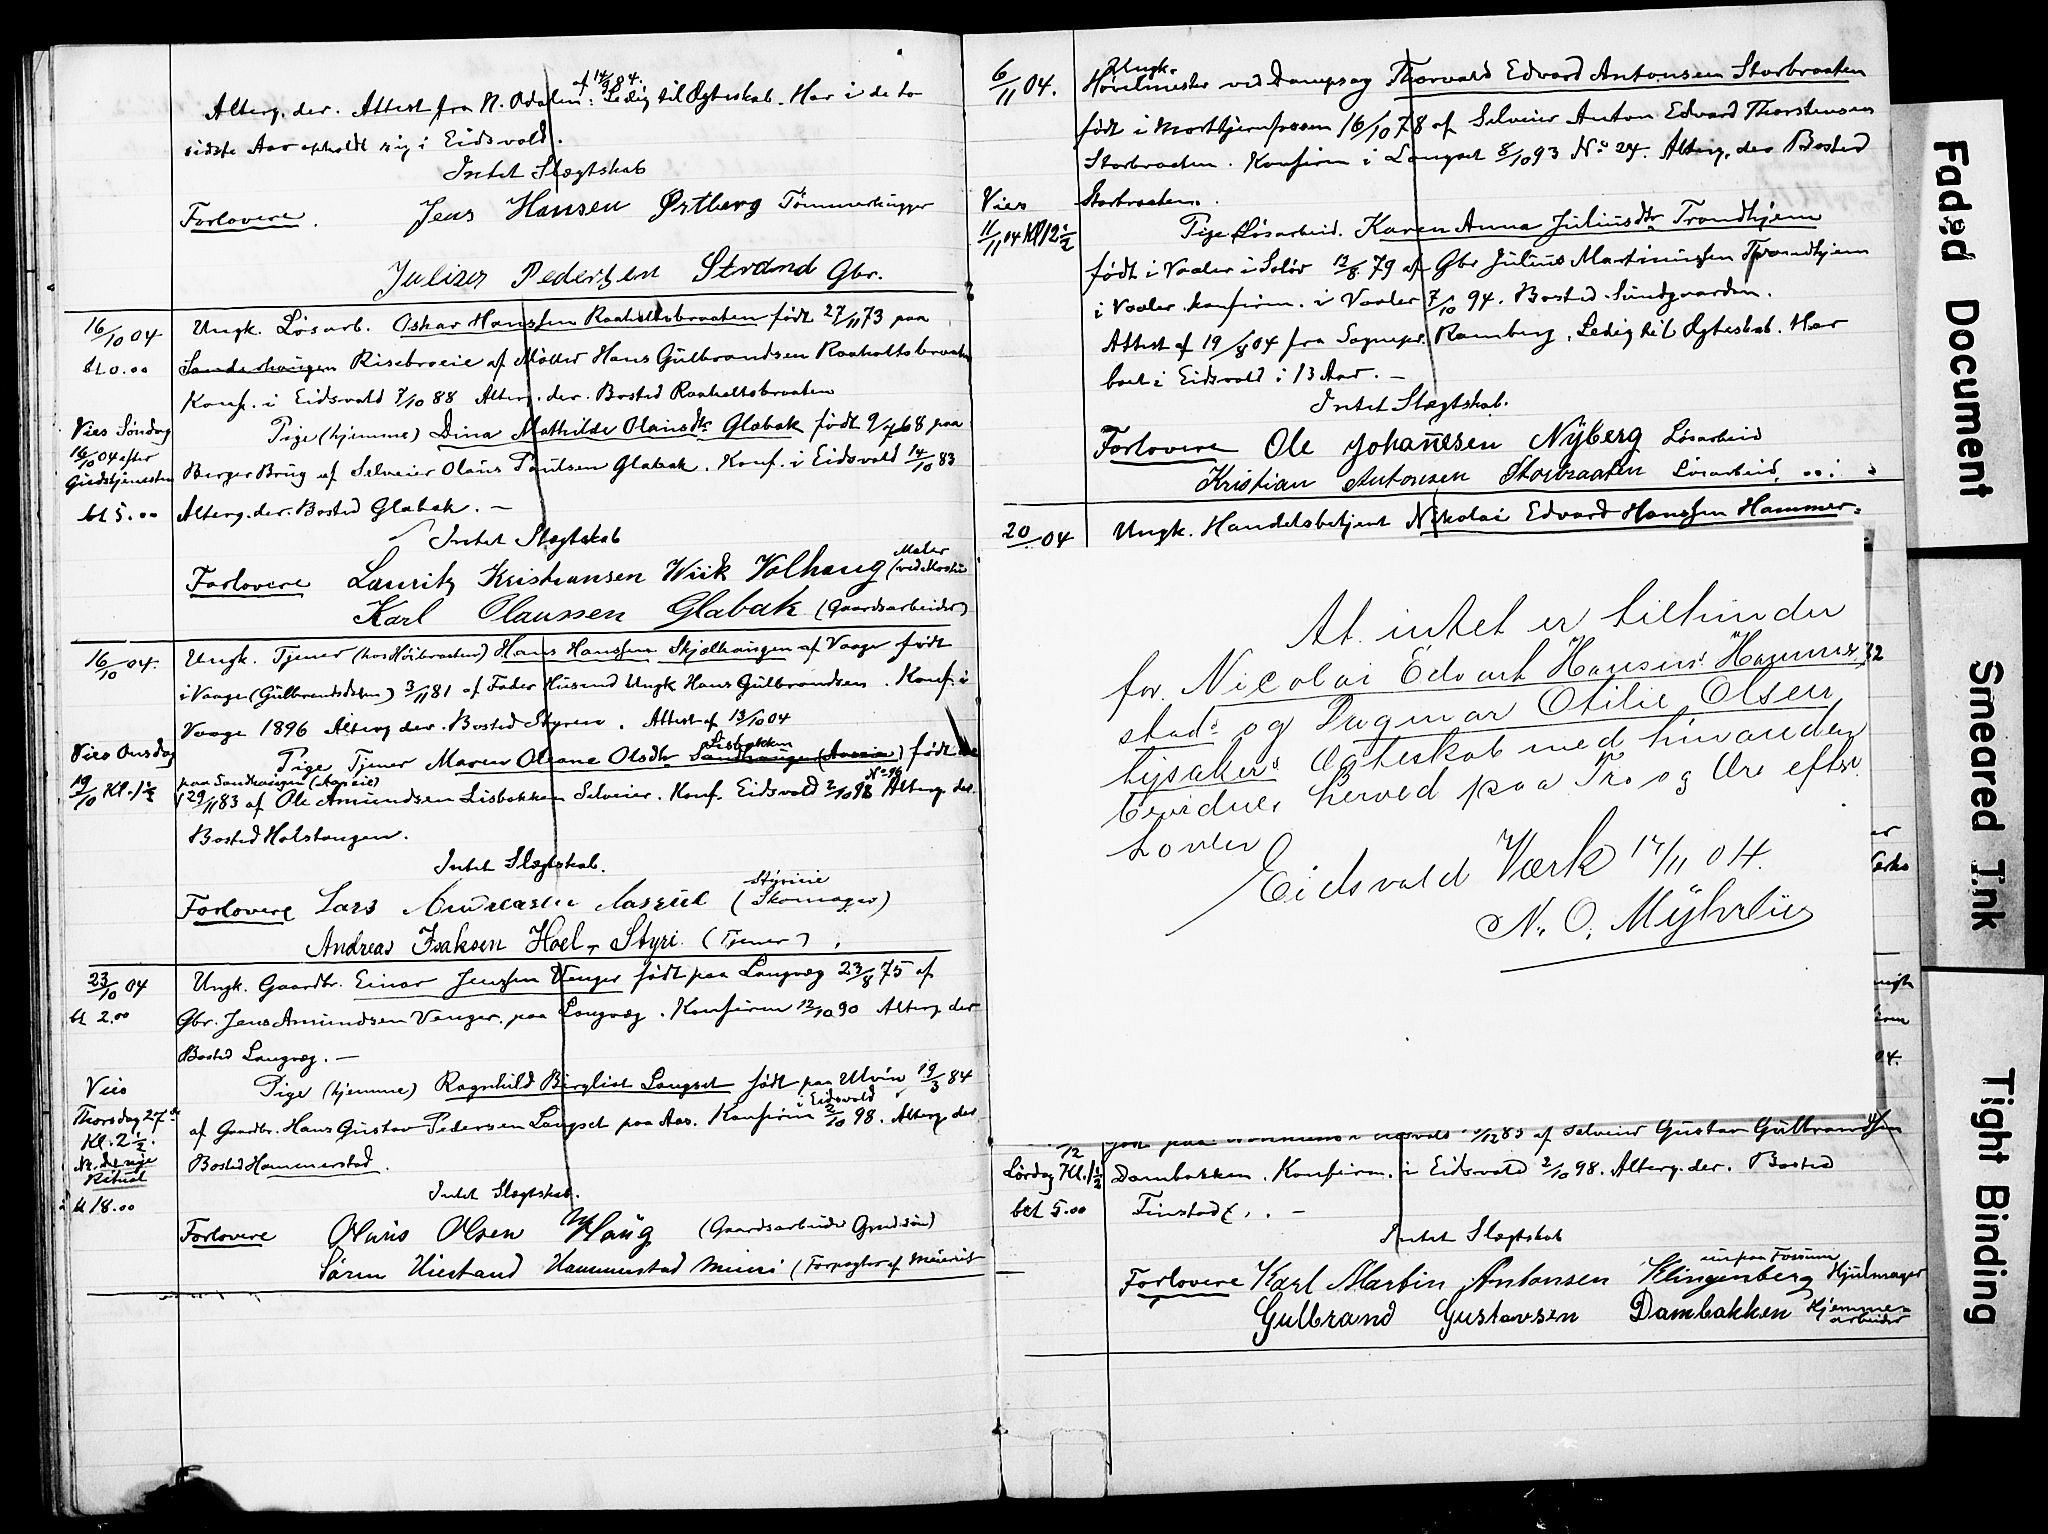 af 14/3 84.
Alterg. der. Attest fra N. Odalen: Ledig til Ægteskab. Har i de to
sidste Aar opholdt sig i Eidsvold.
Intet Slægtskab
Forlovere. Jens Hansen Østberg Tømmerhugger
Julius Pedersen Strand Gbr.
16/10 04 Ungk. Løsarb. Oskar Hanssen Raaholtsbraaten født 27/11 73 paa
bt 0.00 Risebroeie af Møller Hans Gülbrandsen Raaholtsbraaten
Konf. i Eidsvold 7/10 88 Alterg. der. Bosted Raaholtsbraaten
Vies Søndag Pige (hjemme) Dina Mathilde Olausdtr Glabak født 9/7 68 paa
16/10 04 efter Berger Brug af Selveier Olaus Paulsen Glabak. Konf. i Eidsvold 14/10 83
Gudstjenesten
bt 5.00 Alterg. der. Bosted Glabak. —
Intet Slægtskab
Forlovere Lauritz Kristiansen Wiik Volhaug Maler
Karl Olaussen Glabak (Gaardsarbeider)
16/10 04. Ungk. Tjener (hos Høibraaten) Hans Hanssen Skjølhaugen af Vaage født
i Vaage 3/11 81 af Fader Husmd Ungk Hans Gülbrandsen. Konf. i
Vaage 1896 Alterg der. Bosted Styren. Attest af 13/10 04
Vies Onsdag Pige Tjener Maren Oleane Olsdtr Lisbakken Sandhaugen født
paa Sandhaugen
19/10 Kl. 1½ 29/11 83 af Ole Amundsen Lisbakken Selveier. Konf. Eidsvold 2/10 98 Alterg. der.
Bosted Holstangen.
Intet Slægtskab.
Forlovere Lars (Skomager)
Andreas Isaksen Hoel, Styri. (Tjener)
23/10 04 Ungk. Gaardbr. Einar Jenssen Venger født paa Langvæg 23/8 75 af
bt 2.00 Gbr. Jens Amundsen Venger paa Langvæg. Konfirm 12/10 90 Alterg. der
Bosted Langvæg. —
Vies Pige (hjemme) Ragnhild Birgliot Langset født paa Ulvin 19/3 84
Thorsdag 27de af Gaardbr. Hans Gustav Pedersen Langset paa Aas. Konfirm i Eidsvold 2/10 98. Alterg. der
Kl. 2½.
NB. de nye Bosted Hammerstad.
Ritual
bt 18.00 Intet Slægtskab.
Forlovere Olaus Olsen Haug (Gaardsarbeider
Søren Hiestand Hammerstad Mieri (Forpagter af Meieriet
6/11 04. Ungk. Høvelmester ved Dampsag Thorvald Edvard Antonsen Storbraaten
født i 16/10 78 af Selveier Anton Edvard Thorstensen
Storbraaten. Konfirm i Langset 8/10 93 No 24. Alterg. der Bosted
Vies Storbraaten.
11/11 04 Kl 12½ Pige Løsarbeid. Karen Anna Juliusdtr Trondhjem
født i Vaaler i Solør 12/8 79 af Gbr Julius Martinussen Trondhjem
i Vaaler konfirm. i Vaaler 7/10 94. Bosted Sundgaarden.
Attest af 19/8 04 fra Sognepr. Ramberg, Ledig til Ægteskab. Har
boet i Eidsvold i 13 Aar. —
Intet Slægtskab.
Forlovere Ole Johannesen Nyberg Løsarbeid
Kristian Antonsen Storbraaten Løsarbeid
20/ 04 Ungk. Handelsbetjent Nikolai Edvard Hanssen Hammer-
At intet er tilhinder
for Nicolai Edvart Hansens Hammer-
stads og Dagmar Otilie Olsen
Ægteskab med hinanden
bevidnes herved paa Tro og Ære efter
Loven
Eidsvold Værk 17/11 04.
N. O. Myhrlien
af Selveier Gustav Gülbrandsen
Lørdag Kl. 1½ Dambakken. Konfirm. i Eidsvold 2/10 98. Alterg. der. Bosted
bet 5.00 Finstad
Intet Slægtskab
Forlovere Karl Martin Antonsen Klingenberg nu paa Fossum Hjulmager
Gulbrand Gustavsen Dambakken Hjemme-
arbeider
Faded Document
Smeared Ink
Tight Binding